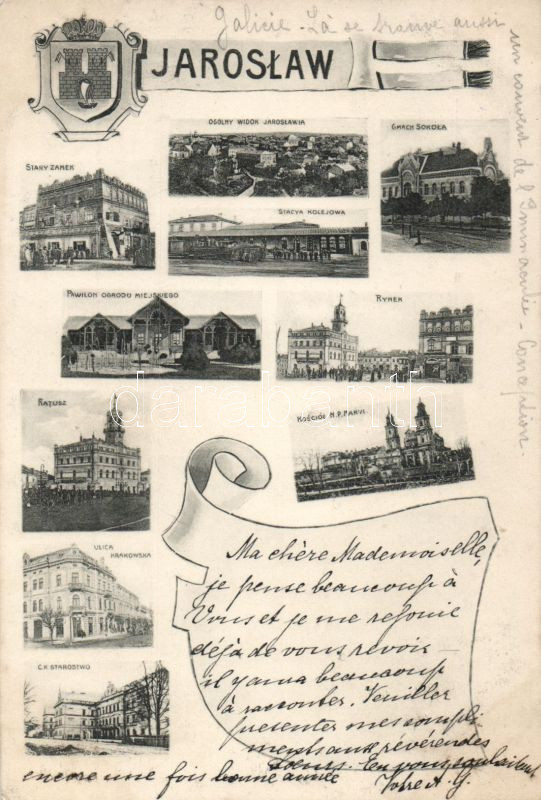 Galicie - Là se trouve aussi
un couvent de l'Immaculée-Conception.
JAROSŁAW
OGOLNY WIDOK JAROSŁAWIA
GMACH SOKOŁA
STARY ZAMEK
STACYA KOLEJOWA
PAWILON OGRODU MIEJSKIEGO
RYNEK
RATUSZ
KOŚCIÓŁ N.P. PANNY
ULICA KRAKOWSKA
C.K. STAROSTWO
Ma chère Mademoiselle,
je pense beaucoup à
Vous et je me rejouie
déjà de vous revoir -
il y aura beaucoup
à raconter. Veuillez
presenter mes compli
ments aux révérendes
Soeurs. En vous souhaitant
encore une fois bonne année
Votre A. G.